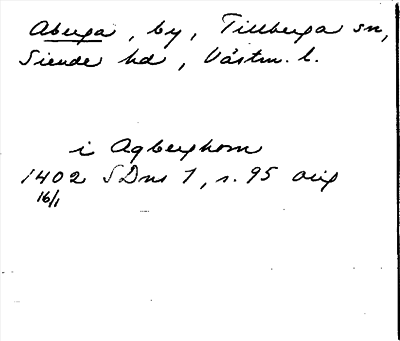 Aberga, by, Tillberga sn,
Siende hd, Västm. l.
i Agberghom
1402 SDns 1, s. 95 orig
16/1